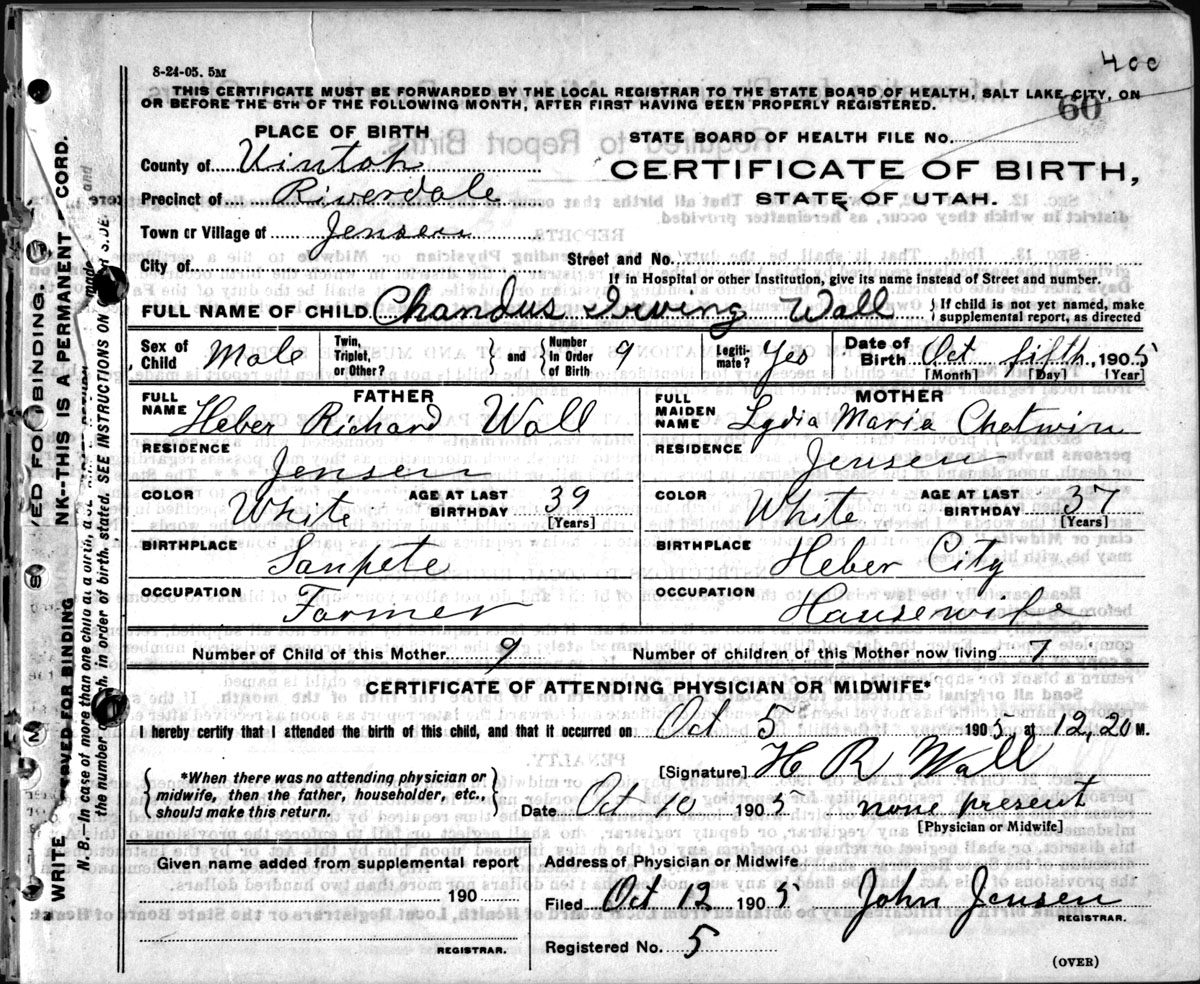 400
8-24-05. 5M
THIS CERTIFICATE MUST BE FORWARDED BY THE LOCAL REGISTRAR TO THE STATE BOARD OF HEALTH, SALT LAKE CITY, ON
OR BEFORE THE 5TH OF THE FOLLOWING MONTH, AFTER FIRST HAVING BEEN PROPERLY REGISTERED.
60
PLACE OF BIRTH
STATE BOARD OF HEALTH FILE No.
County of Uintah
CERTIFICATE OF BIRTH,
Precinct of Riverdale
STATE OF UTAH.
Town or Village of Jensen
City of
Street and No.
If in Hospital or other Institution, give its name instead of Street and number.
FULL NAME OF CHILD Chandus Irving Wall
If child is not yet named, make
supplemental report, as directed
Sex of Child Male Twin, Triplet, or Other? and Number In Order of Birth 9 Legitimate? Yes Date of Birth Oct fifth, 1905
[Month] [Day] [Year]
FATHER MOTHER
FULL NAME Heber Richard Wall FULL MAIDEN NAME Lydia Maria Chatwin
RESIDENCE Jensen RESIDENCE Jensen
COLOR White AGE AT LAST BIRTHDAY 39 [Years] COLOR White AGE AT LAST BIRTHDAY 37 [Years]
BIRTHPLACE Sanpete BIRTHPLACE Heber City
OCCUPATION Farmer OCCUPATION Housewife
Number of Child of this Mother 9 Number of children of this Mother now living 7
CERTIFICATE OF ATTENDING PHYSICIAN OR MIDWIFE*
I hereby certify that I attended the birth of this child, and that it occurred on Oct 5 1905 at 12,20 M.
[Signature] H R Wall
*When there was no attending physician or
midwife, then the father, householder, etc.,
should make this return.
Date Oct 10 1905 none present
[Physician or Midwife]
Given name added from supplemental report
190
REGISTRAR.
Address of Physician or Midwife
Filed Oct 12 1905 John Jensen
REGISTRAR.
Registered No. 5
(OVER)
WRITE
NK--THIS IS A PERMANENT
CORD.
N. B. In case of more than one child at a birth, a
the number of each, in order of birth, stated. SEE INSTRUCTIONS ON